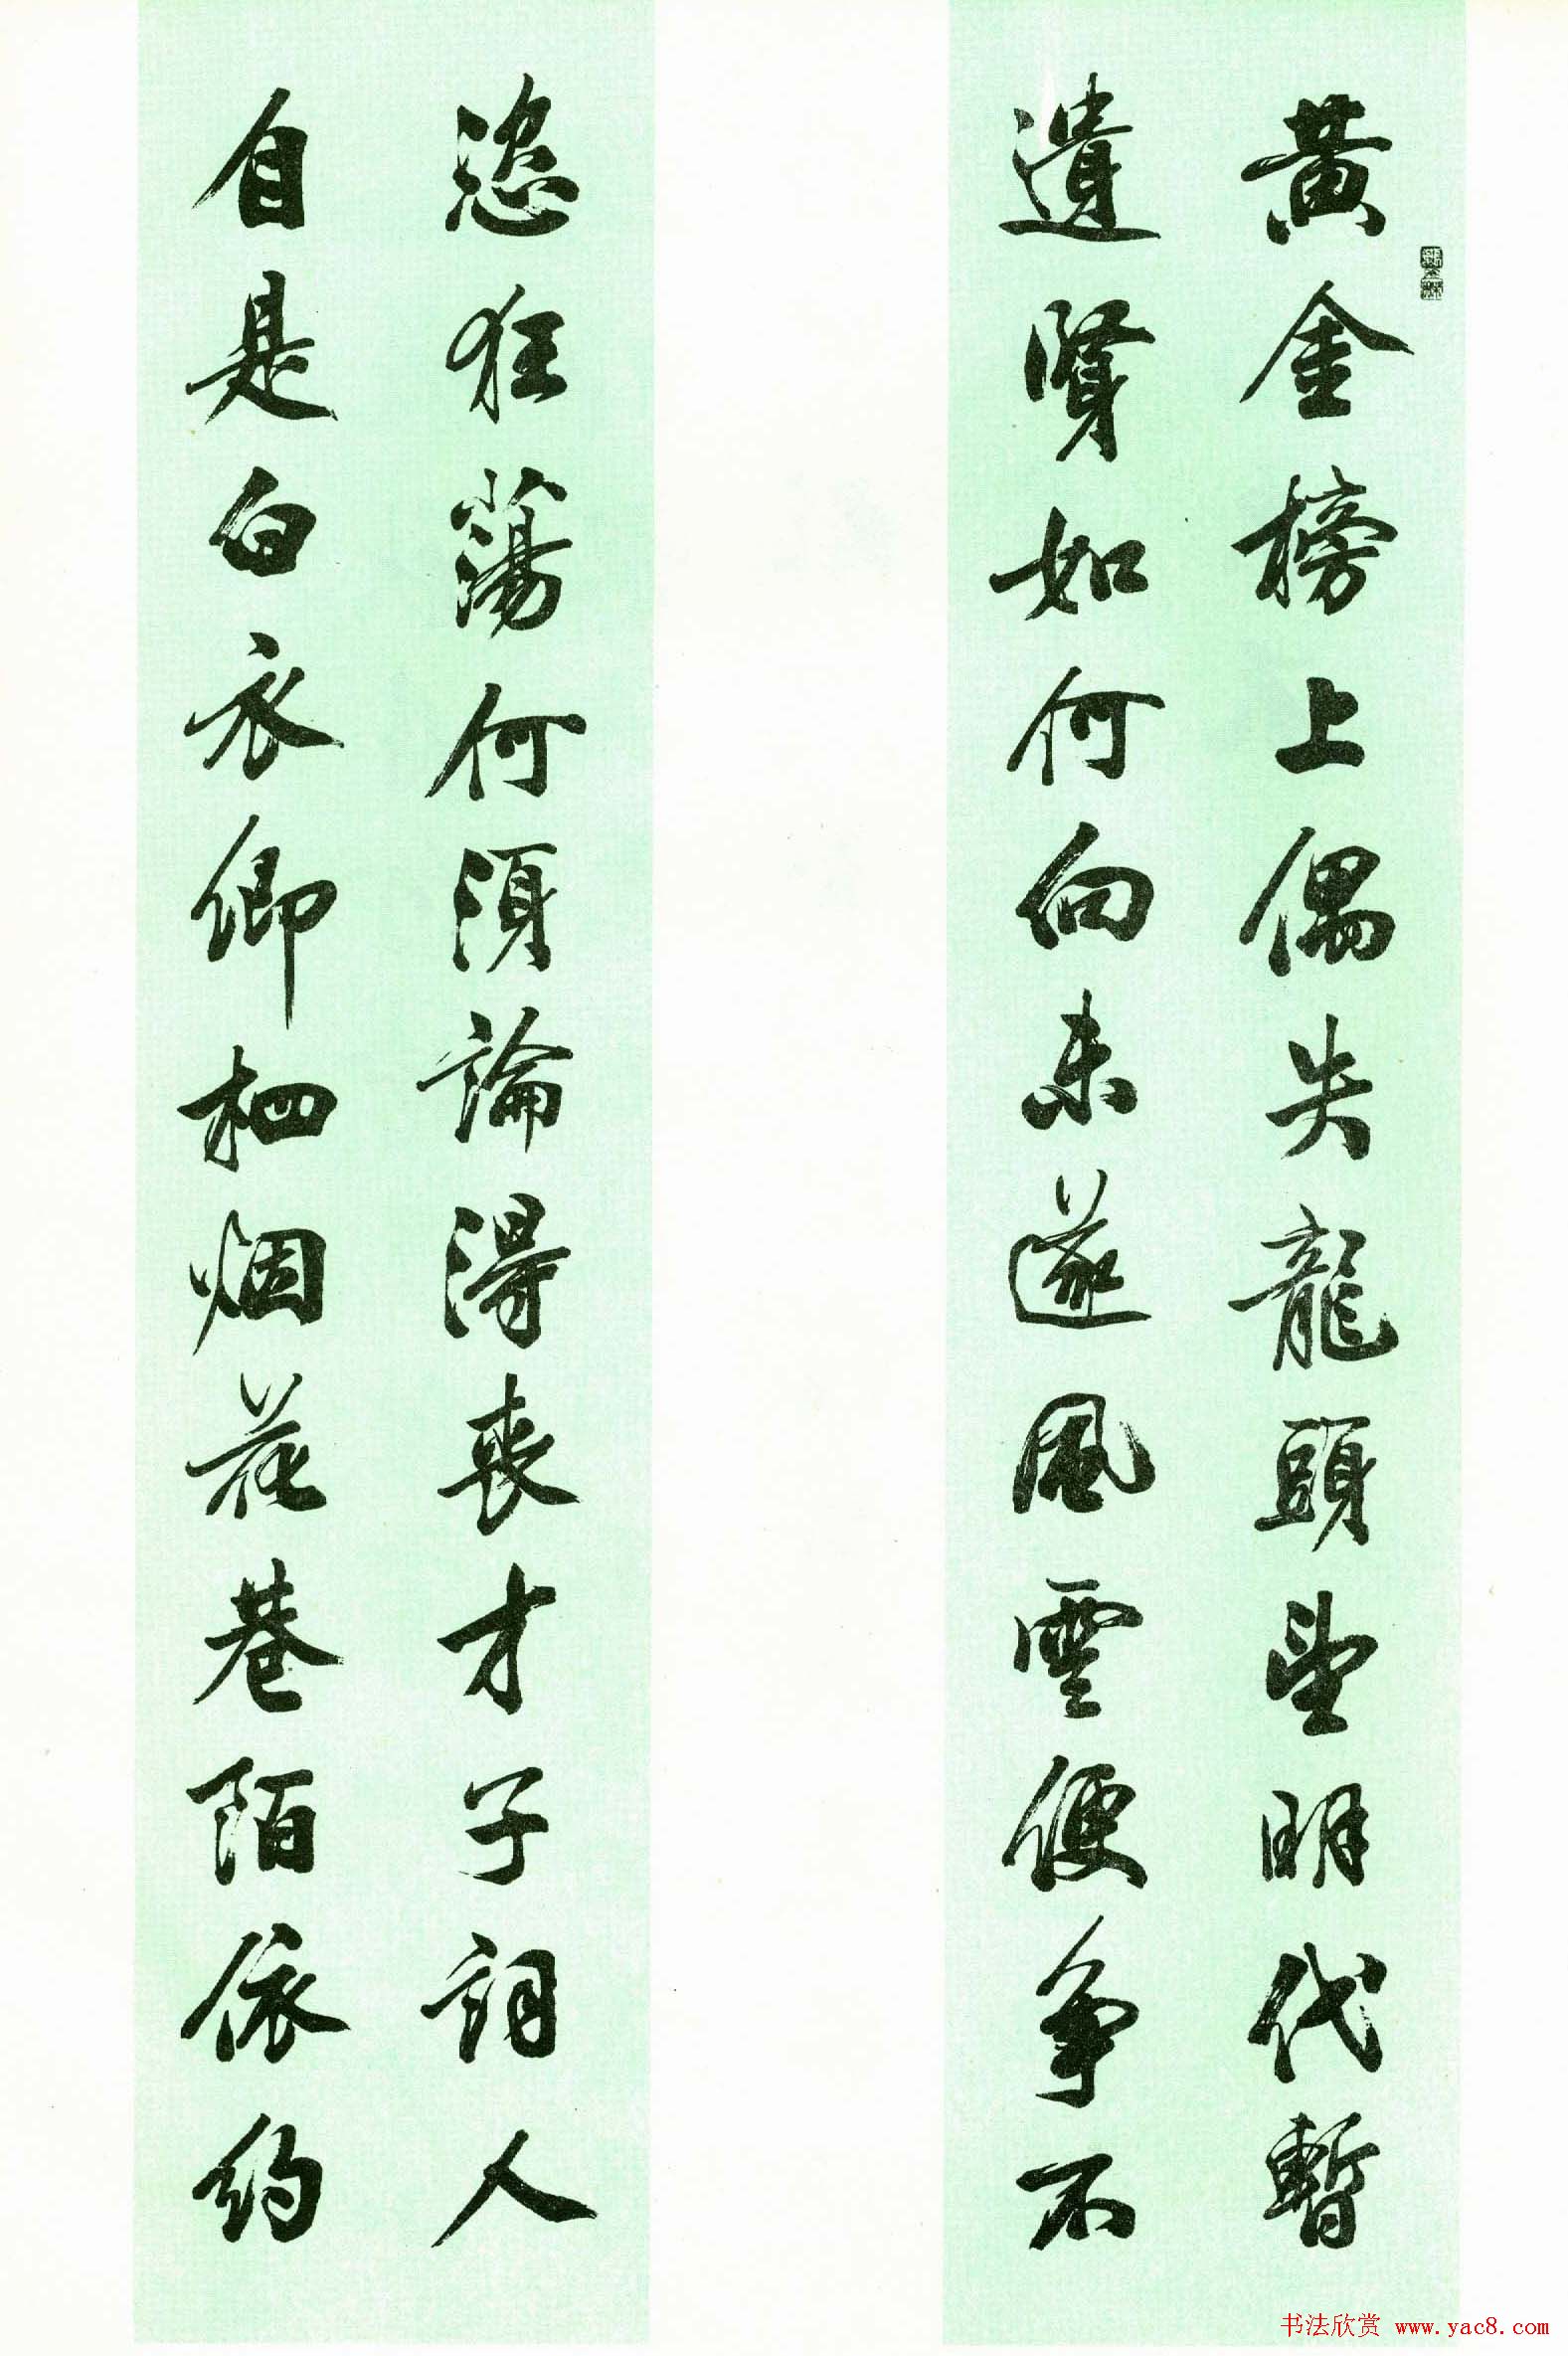 黃金榜上偶失龍頭望明代暫
遺賢如何向未遂風雲便爭不
恣狂蕩何須論得喪才子詞人
自是白衣卿相烟花巷陌依約
书法欣赏 www.yac8.com